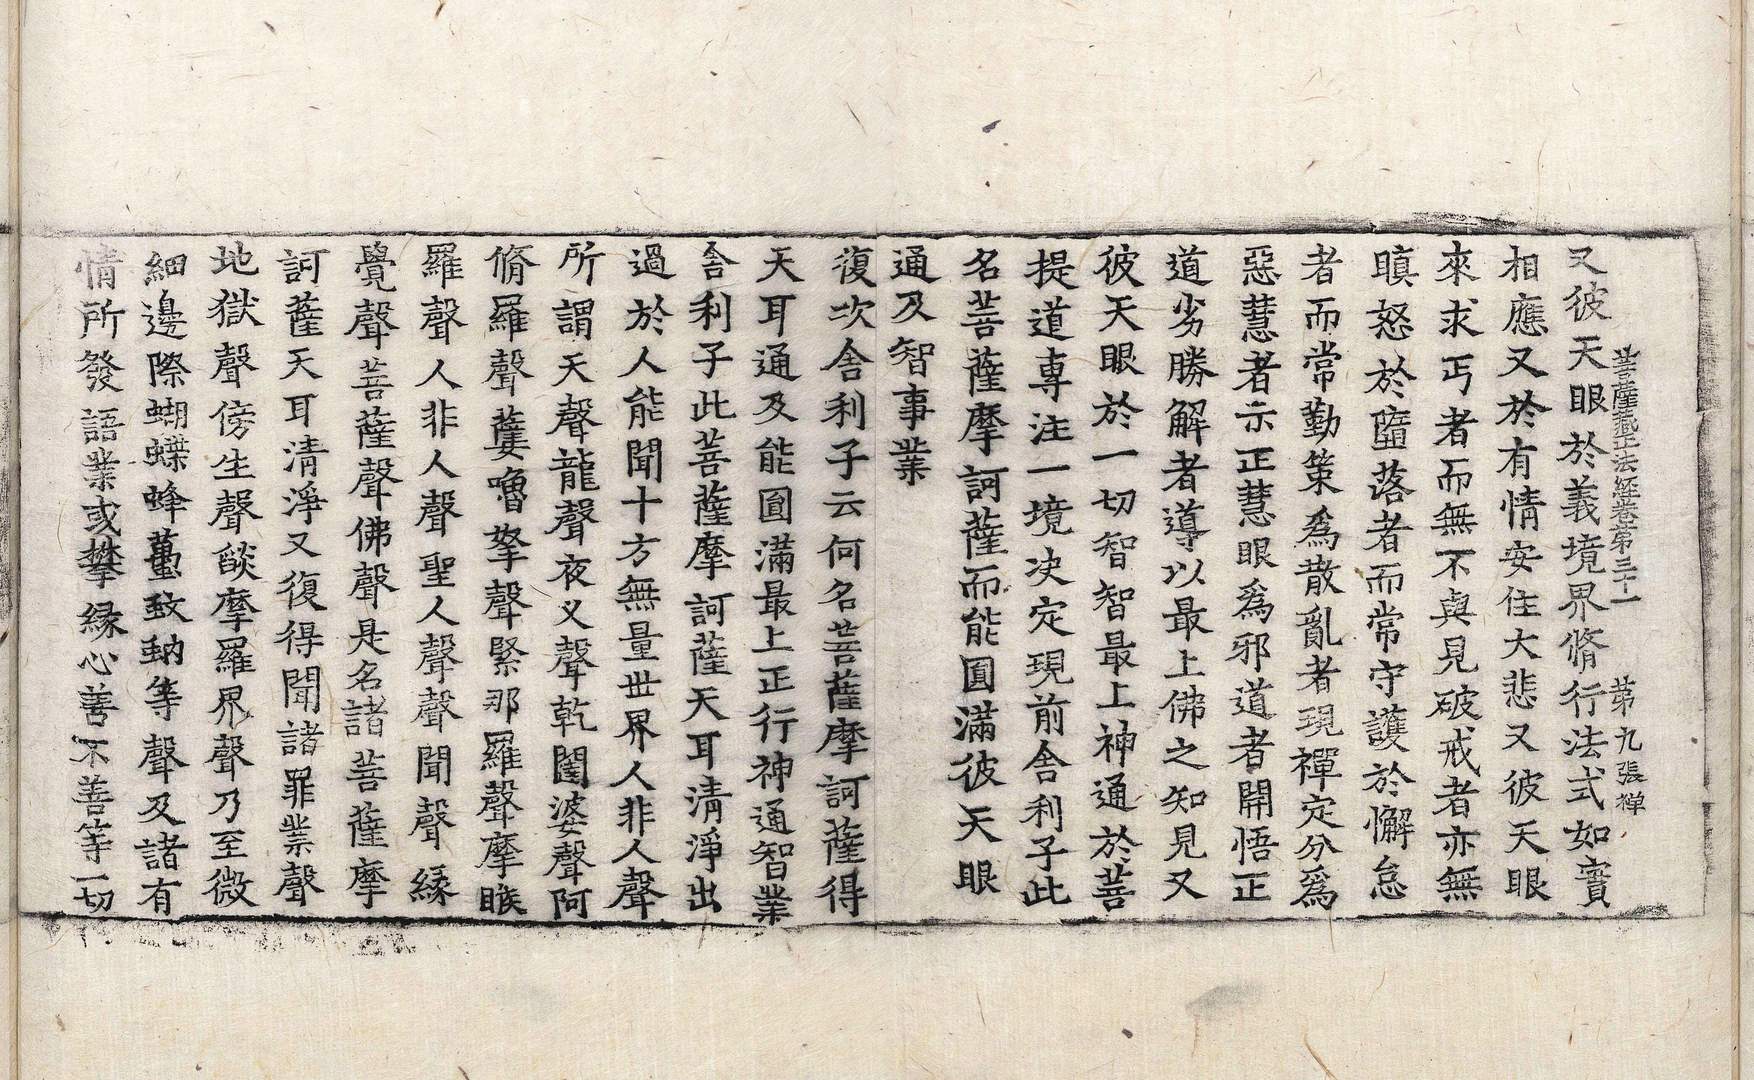 菩薩藏正法經卷第三十一 第九張 禅
又彼天眼於義境界脩行法式如實
相應又於有情安住大悲又彼天眼
來求丐者而無不與見破戒者亦無
瞋怒於墮落者而常守護於懈怠
者而常勤策爲散亂者現禪定分爲
惡慧者示正慧眼爲邪道者開悟正
道劣勝解者導以最上佛之知見又
彼天眼於一切智智最上神通於菩
提道專注一境决定現前舍利子此
名菩薩摩訶薩而能圓滿彼天眼
通及智事業
復次舍利子云何名菩薩摩訶薩得
天耳通及能圓滿最上正行神通智業
舍利子此菩薩摩訶薩天耳清淨出
過於人能聞十方無量世界人非人聲
所謂天聲龍聲夜叉聲乾闥婆聲阿
脩羅聲蘷嚕拏聲緊那羅聲摩睺
羅聲人非人聲聖人聲聲聞聲緣
覺聲菩薩聲佛聲是名諸菩薩摩
訶薩天耳清淨又復得聞諸罪業聲
地獄聲傍生聲燄摩羅界聲乃至微
細邊際蝴蝶蜂蠆蚊蚋等聲及諸有
情所發語業或攀緣心善不善等一切